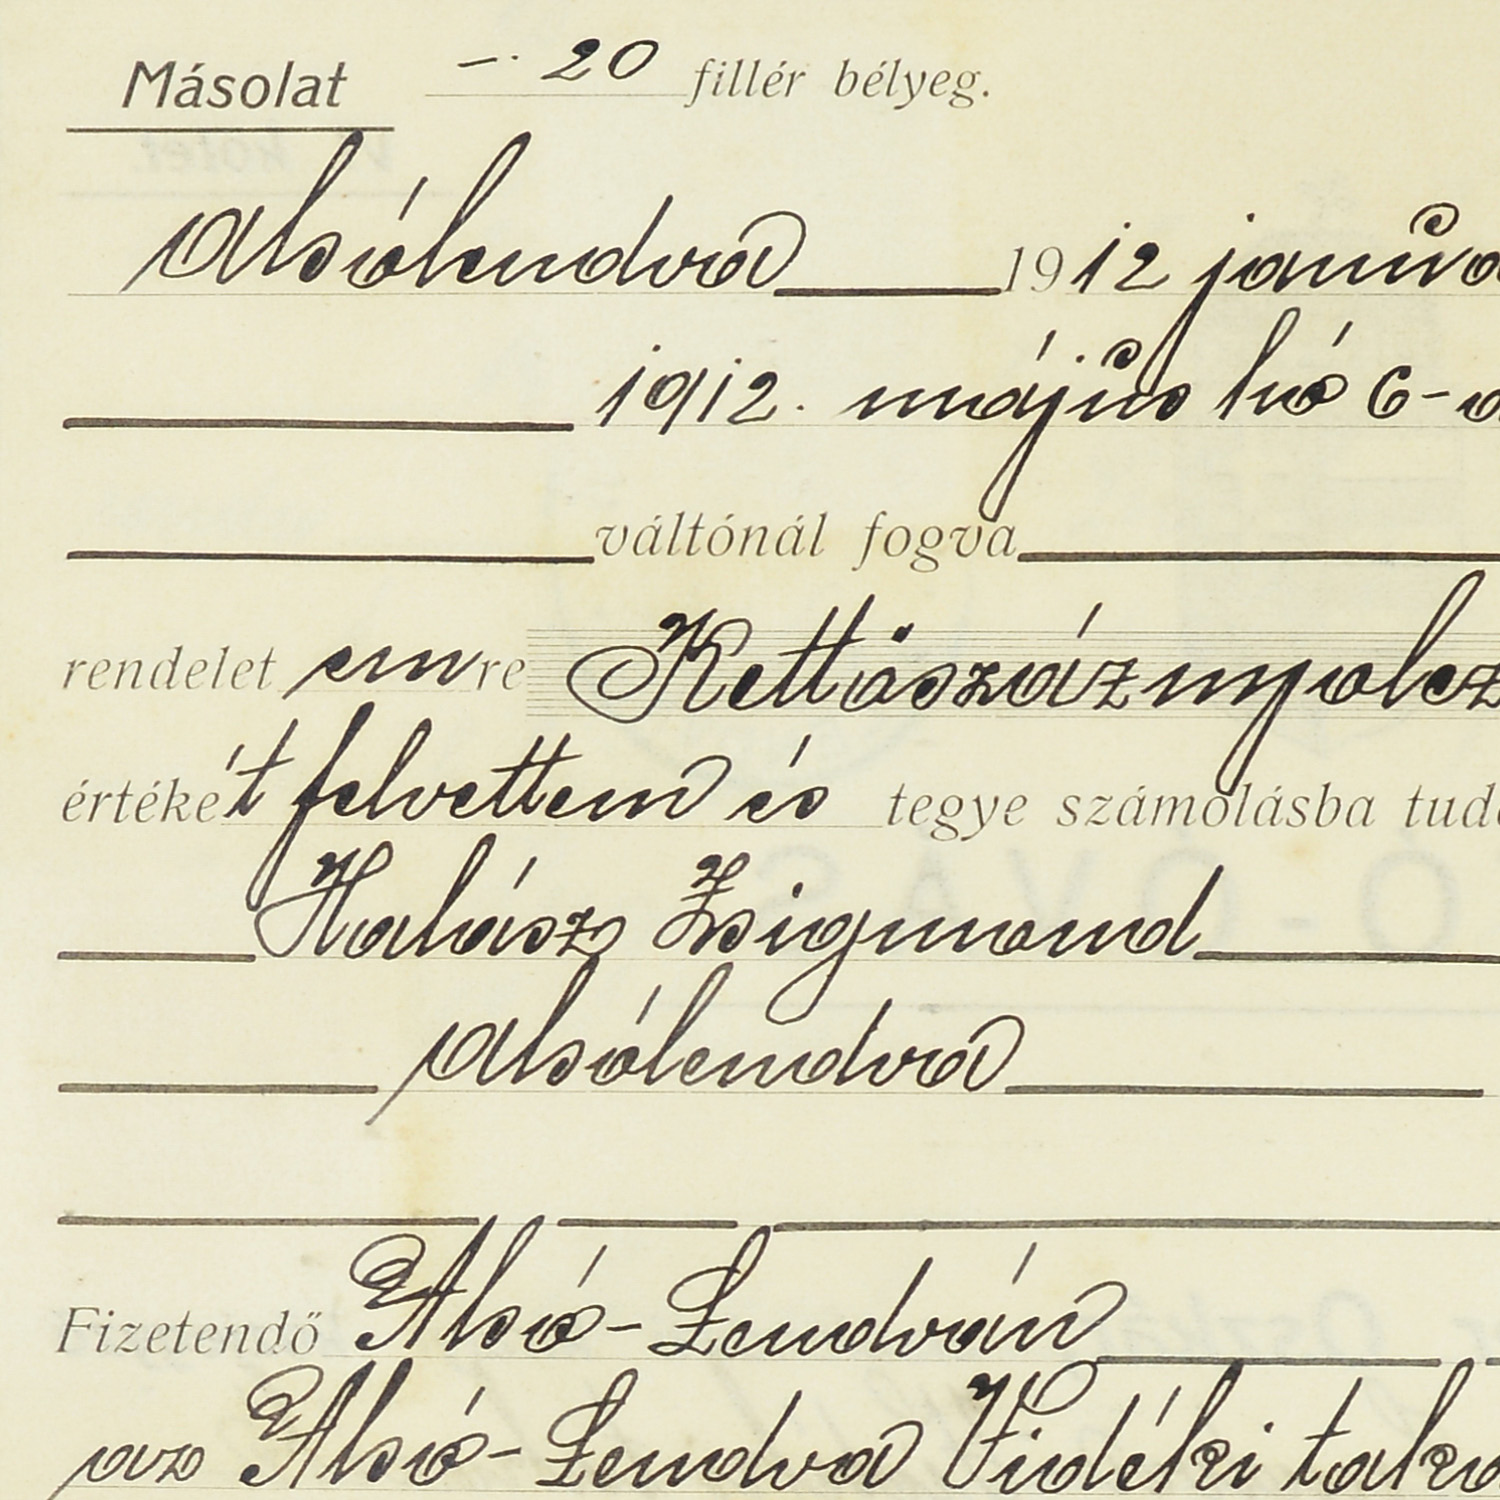 Másolat –· 20 fillér bélyeg.
Alsólendva 1912 januá
1912. május hó 6-a
váltónál fogva
rendelet emre Kettőszáznyolcz
értékét felvettem és tegye számolásba tud
Halász Zsigmond
Alsólendva
Fizetendő Alsó-Lendván
az Alsó-Lendva Vidéki taka